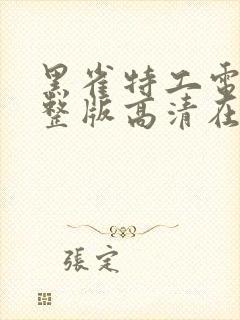 黑雀特工電
整版高清在
張定